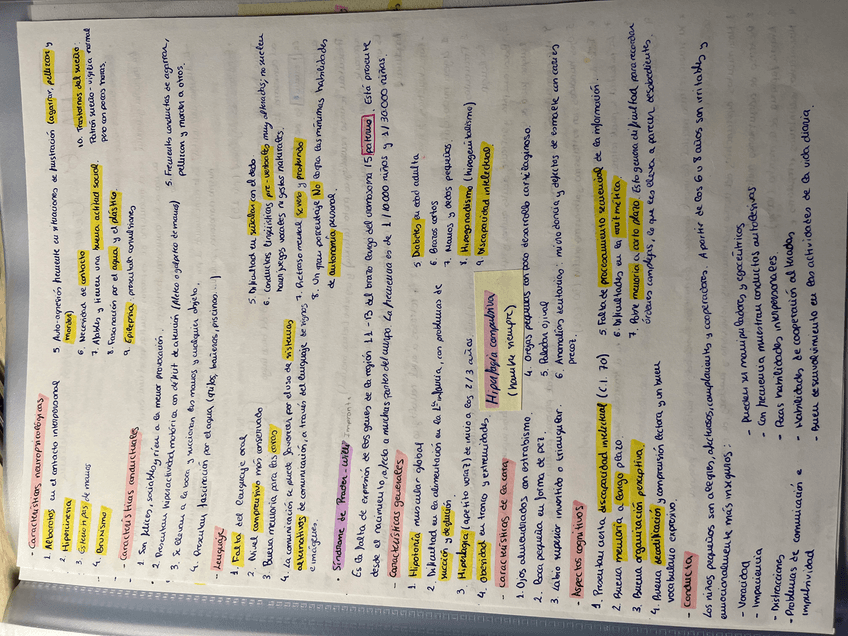 - Características neurofisiológicas
1. Alborotos en el contacto interpersonal
2. Hipercinesia
3. Estereotipias de manos
4. Bruxismo
5. Auto-agresión frecuente en situaciones de frustración (agarrar, pellizcar y
morder)
6. Necesidad de contacto
7. Abiertos y tienen una buena actitud social
8. Fascinación por el agua y el plástico
9. Epilepsia: presentan convulsiones
10. Trastornos del sueño
Patrón sueño-vigilia normal
pero con pocas horas.
- Características conductuales
1. Son felices, sociables y ríen a la menor provocación.
2. Presentan hiperactividad motórica con déficit de atención (Aleteo o golpeteo de manos)
3. Se llevan a la boca y succionan las manos y cualquier objeto.
4. Presentan fascinación por el agua (grifos, bañeras, piscinas...)
5. Frecuente conductas de agarrar,
pellizcar y morder a otros.
- Lenguaje
1. Falta del lenguaje oral
2. Nivel comprensivo más conservado
3. Buena memoria para las caras
4. La comunicación se puede favorecer por el uso de sistemas
alternativos de comunicación, a través del lenguaje de signos
e imágenes.
5. Dificultad en señalar con el dedo
6. Conductas lingüísticas pre-verbales muy alteradas, no suelen
hacer juegos vocales ni gestos naturales.
7. Retraso mental severo y profundo
8. Un gran porcentaje No logra las mínimas habilidades
de autonomía personal.
• Síndrome de Prader-Willi Impronta
Es la falta de expresión de los genes de la región 11-13 del brazo largo del cromosoma 15 paterno. Está presente
desde el nacimiento, afecta a muchas partes del cuerpo. La frecuencia es de 1/10.000 niños y 1/30.000 niñas.
- Características generales
1. Hipotonía muscular global
2. Dificultad en la alimentación en la 1ª infancia, con problemas de
succión y deglución
3. Hiperfagia (apetito voraz) de inicio a los 2/3 años
4. Obesidad en tronco y extremidades.
5. Diabetes en edad adulta
6. Brazos cortos
7. Manos y dedos pequeños.
8. Hipogonadismo (hipogenitalismo)
9. Discapacidad intelectual
Hiperfagia compulsiva
(hambre siempre)
- Características de la cara
1. Ojos almendrados con estrabismo.
2. Boca pequeña en forma de pez.
3. Labio superior invertido o triangular
4. Orejas pequeñas con poco desarrollo cartilaginoso.
5. Paladar ojival
6. Anomalías dentarias: microdoncia y defectos de esmalte con caries
precoz.
- Aspectos cognitivos
1. Presentan cierta discapacidad intelectual (C.I. 70)
2. Buena memoria a largo plazo
3. Buena organización perceptiva
4. Buena decodificación y comprensión lectora y un buen
vocabulario expresivo.
5. Falta de procesamiento secuencial de la información.
6. Dificultades en la aritmética
7. Pobre memoria a corto plazo. Esto genera dificultad para recordar
órdenes complejas, lo que les lleva a parecer desobedientes.
- Conducta
Los niños pequeños son alegres, afectuosos, complacientes y cooperadores. A partir de los 6 u 8 años son irritables y
emocionalmente más inseguros:
- Voracidad
- Impaciencia
- Distracciones
- Problemas de comunicación e
impulsividad
- Pueden ser manipuladores y egocéntricos
- Con frecuencia muestran conductas autolesivas
- Pocas habilidades interpersonales
- Habilidades de cooperación alteradas
- Buen desenvolvimiento en las actividades de la vida diaria.